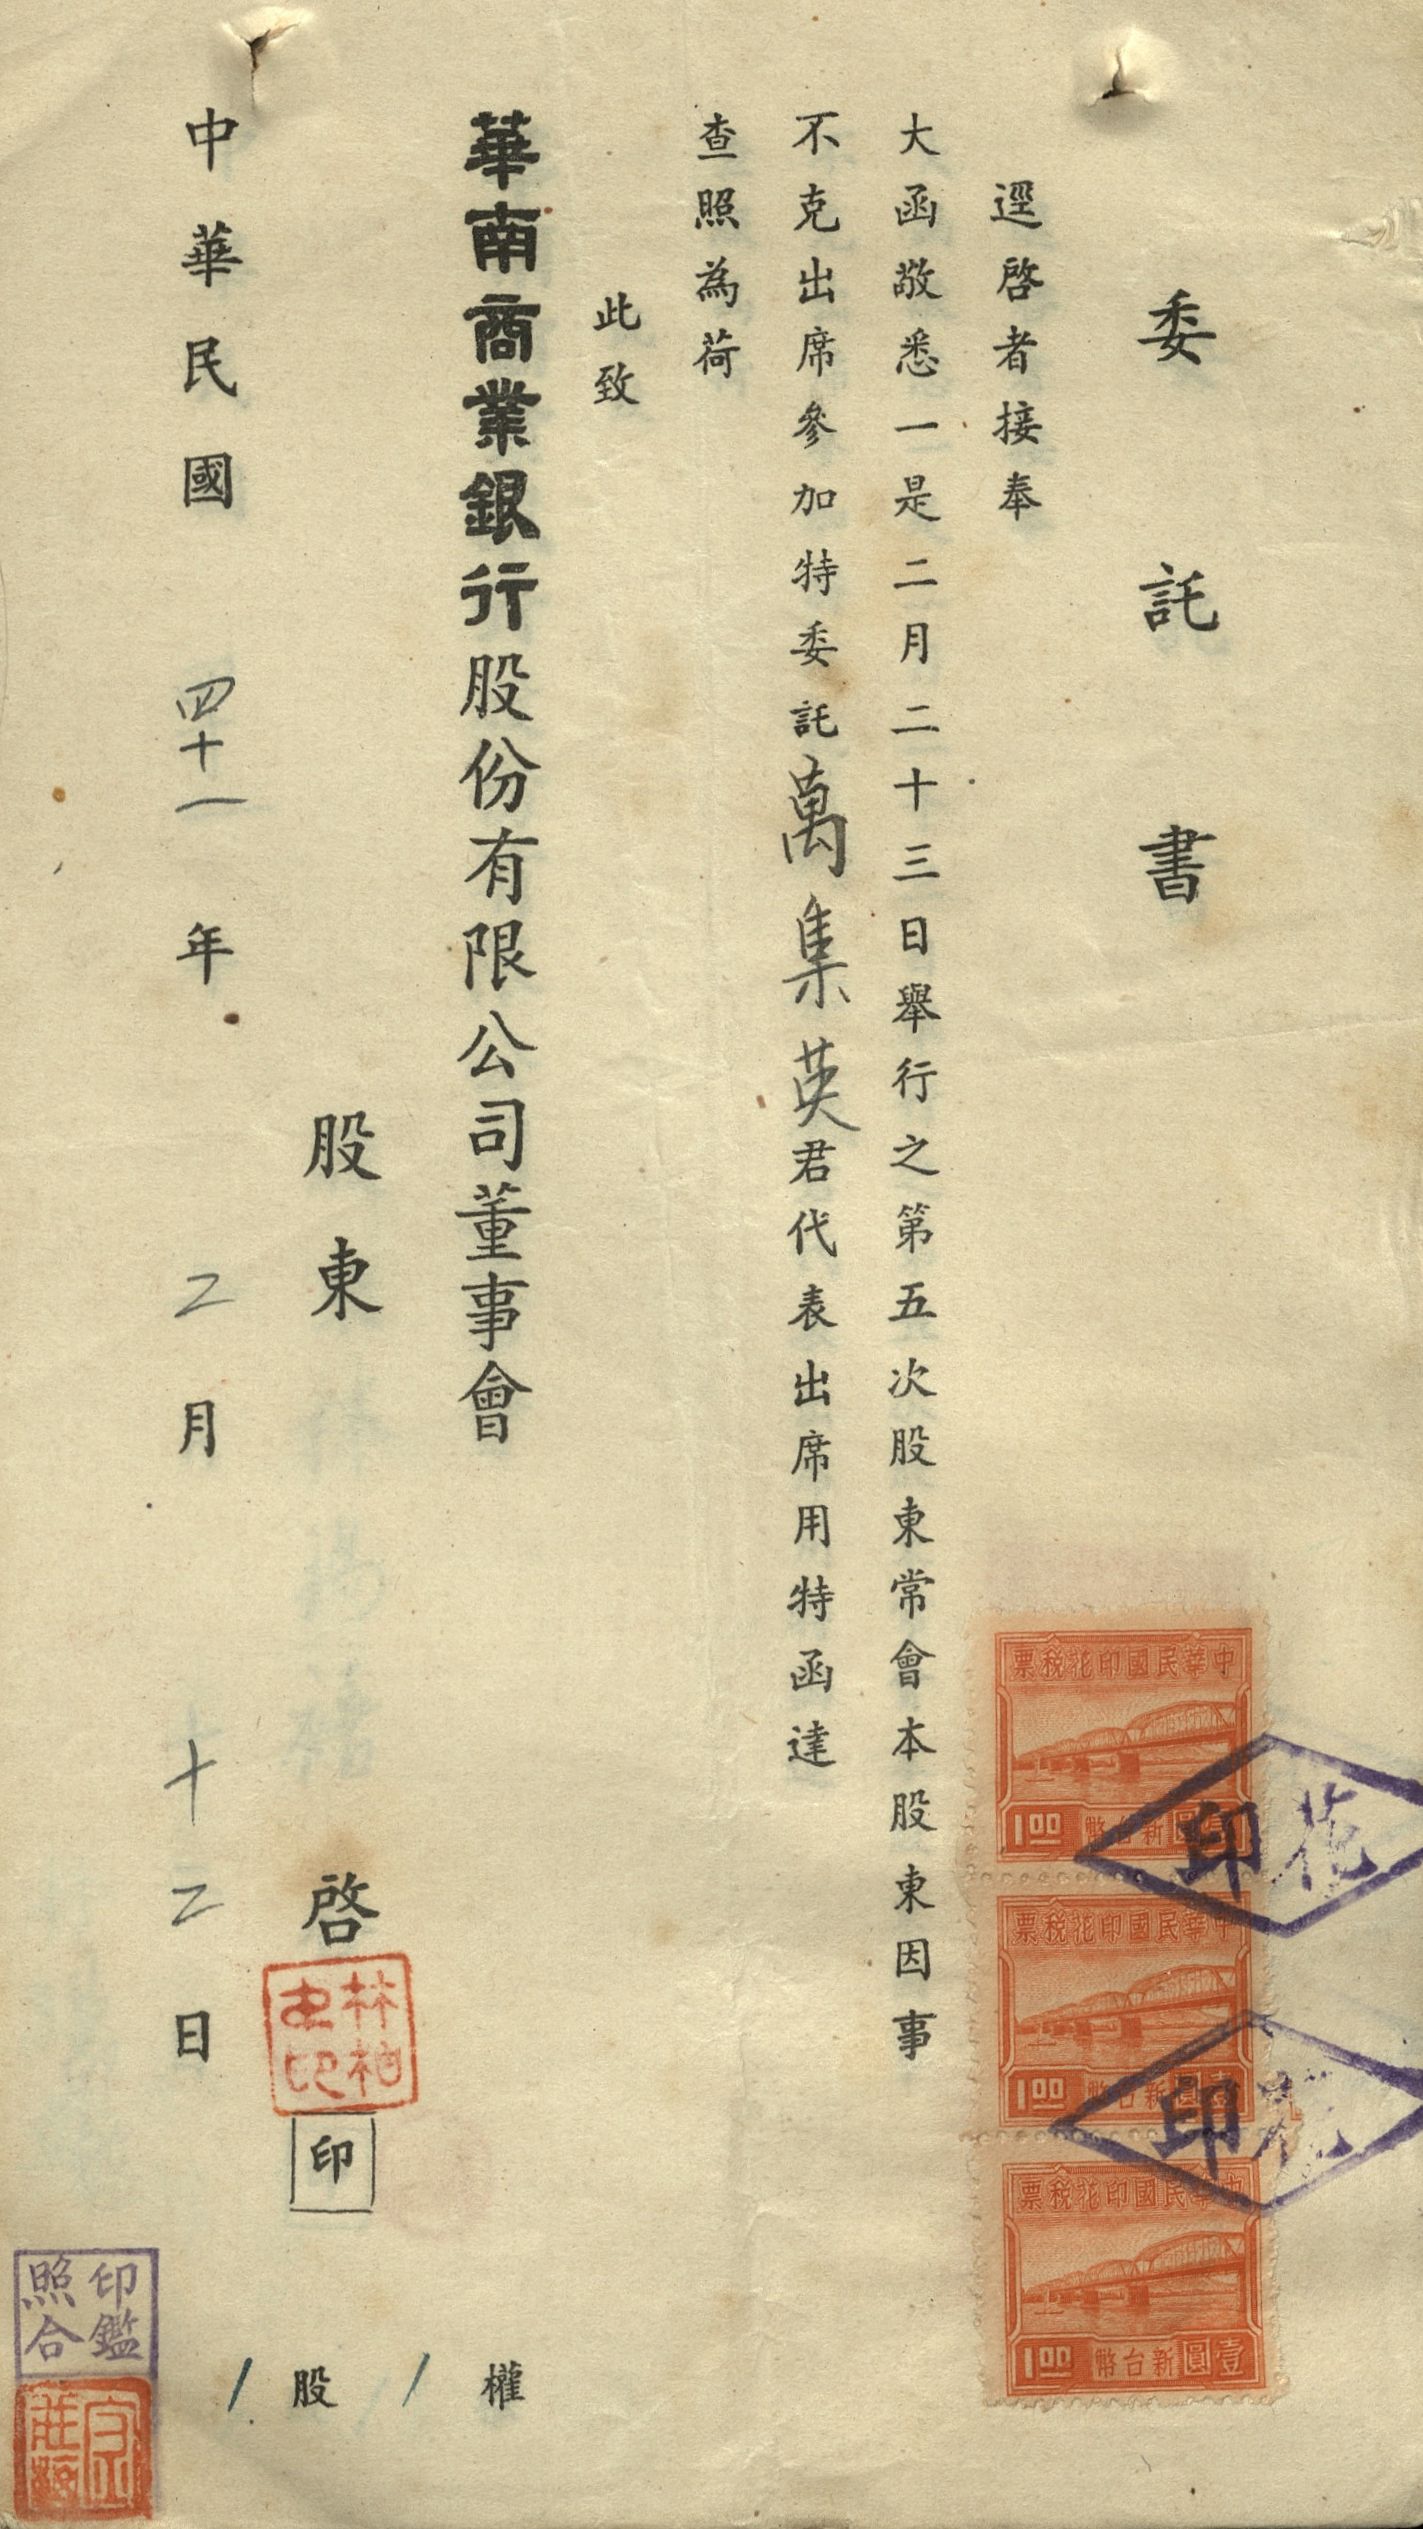 委託書
逕啓者接奉
大函敬悉一是二月二十三日舉行之第五次股東常會本股東因事
不克出席參加特委託萬集英君代表出席用特函達
查照為荷
此致
華南商業銀行股份有限公司董事會
股東 啓
印
中華民國四十一年二月十二日
權 / 股 /
中華民國印花稅票
1.00 新台幣壹圓
中華民國印花稅票
1.00 新台幣壹圓
中華民國印花稅票
1.00 新台幣壹圓
花印
花印
印鑑
照合